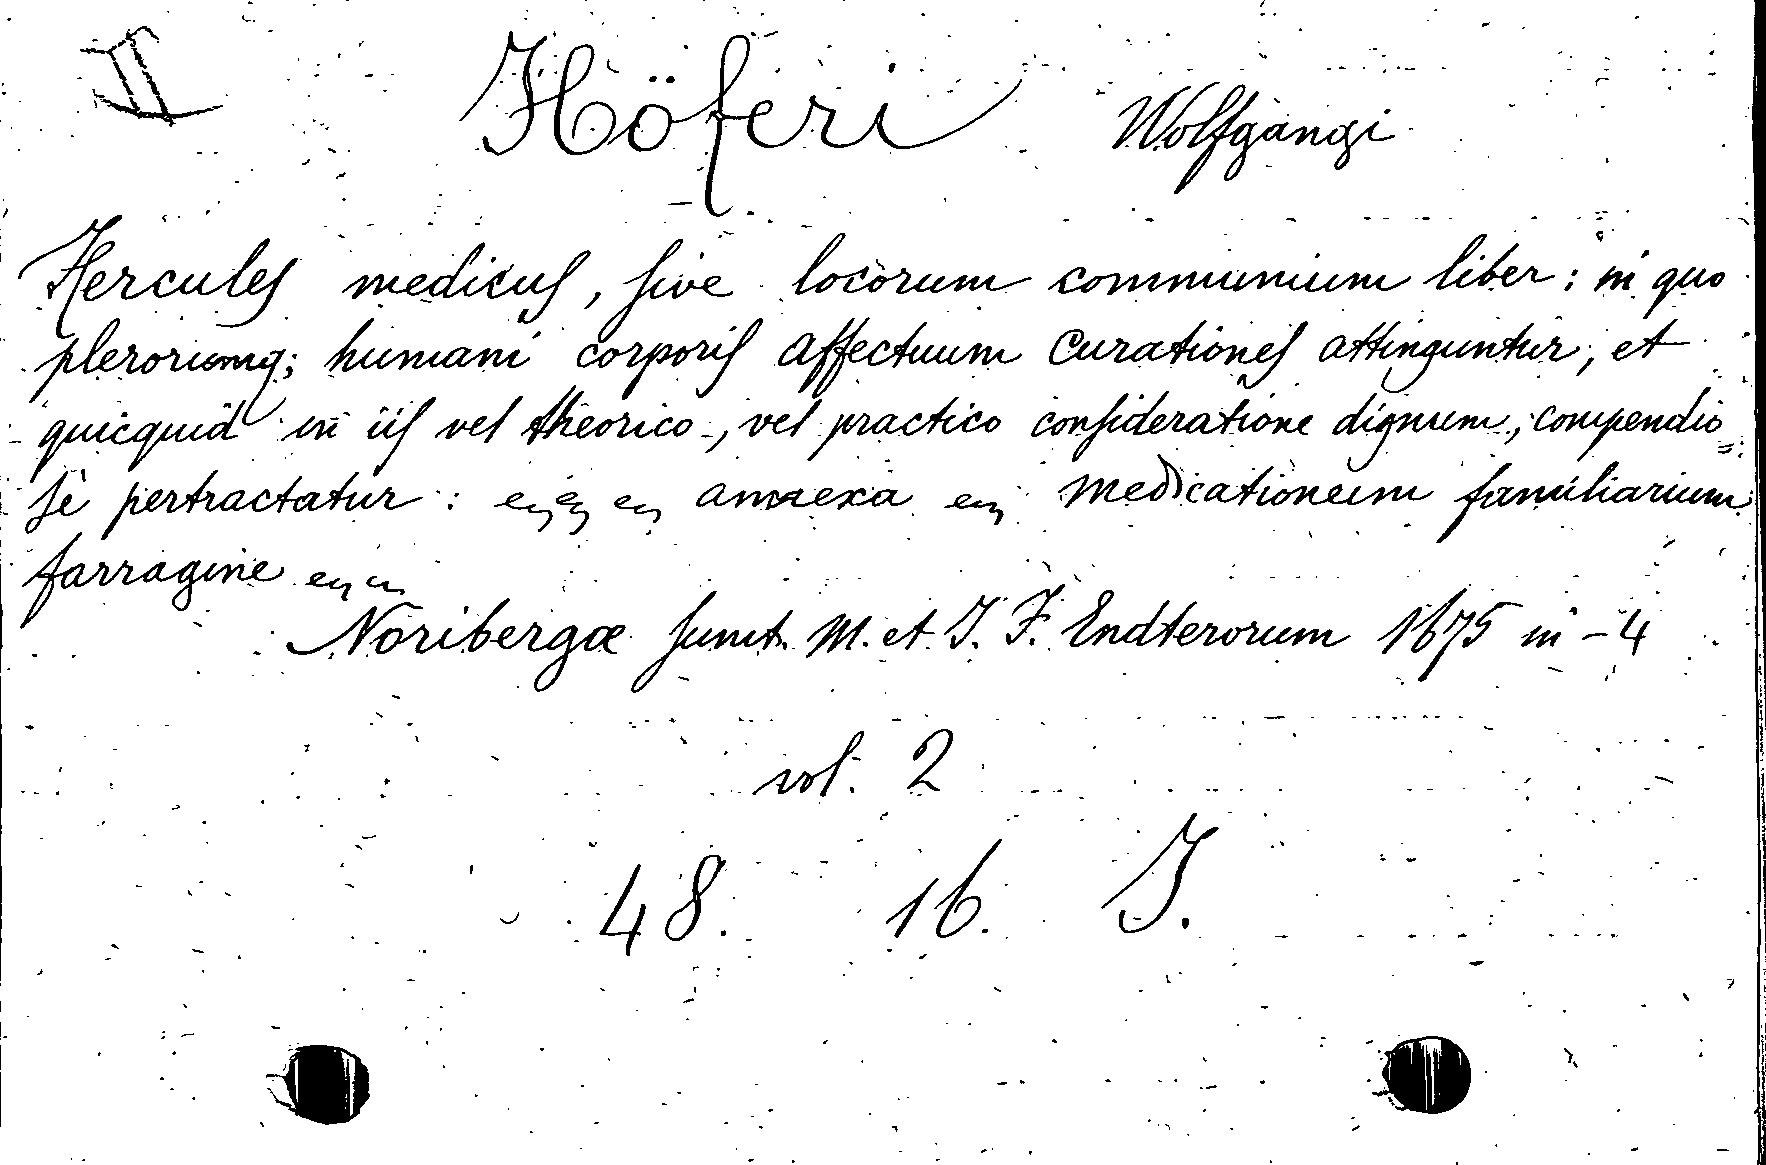 II
Höferi Wolfgangi
Hercules medicus, sive locorum communium liber: in quo
plerorumq; humani corporis affectuum curationes attinguntur, et
quicquid in iis vel theorico, vel practico consideratione dignum, compendio=
sè pertractatur: annexa medicationum familiarium
farragine
Noribergæ sumt. M. et J. F. Endterorum 1675 in-4
vol. 2
48. 16. J.